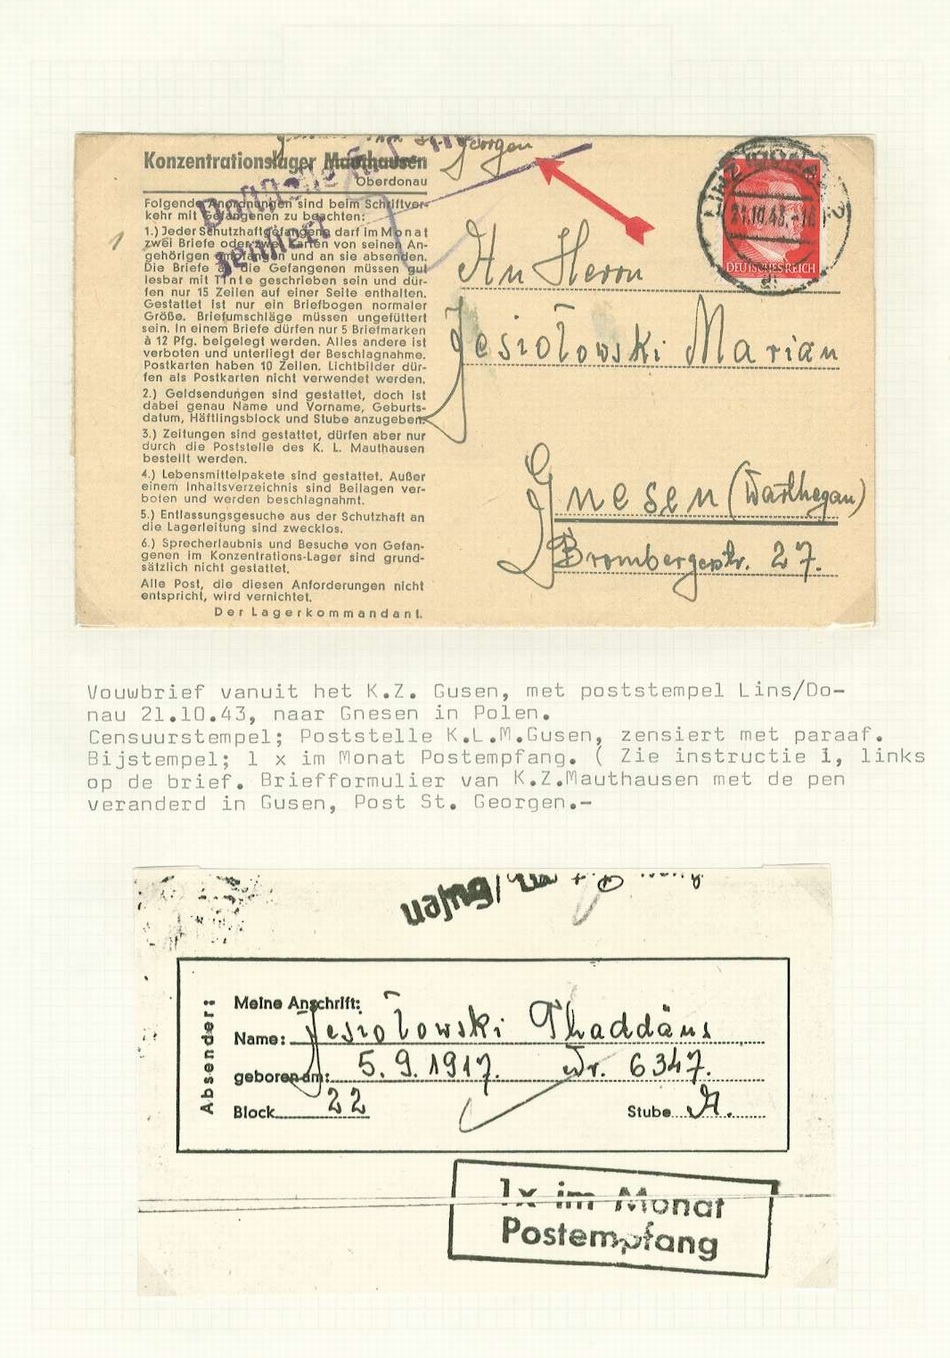 Georgen
Konzentrationslager Mauthausen
Oberdonau
Folgende Anordnungen sind beim Schriftver-
kehr mit Gefangenen zu beachten:
1.) Jeder Schutzhaftgefangene darf im Monat
zwei Briefe oder zwei Karten von seinen An-
gehörigen empfangen und an sie absenden.
Die Briefe an die Gefangenen müssen gut
lesbar mit Tinte geschrieben sein und dür-
fen nur 15 Zeilen auf einer Seite enthalten.
Gestattet ist nur ein Briefbogen normaler
Größe. Briefumschläge müssen ungefüttert
sein. In einem Briefe dürfen nur 5 Briefmarken
à 12 Pfg. beigelegt werden. Alles andere ist
verboten und unterliegt der Beschlagnahme.
Postkarten haben 10 Zeilen. Lichtbilder dür-
fen als Postkarten nicht verwendet werden.
2.) Geldsendungen sind gestattet, doch ist
dabei genau Name und Vorname, Geburts-
datum, Häftlingsblock und Stube anzugeben.
3.) Zeitungen sind gestattet, dürfen aber nur
durch die Poststelle des K. L. Mauthausen
bestellt werden.
4.) Lebensmittelpakete sind gestattet. Außer
einem Inhaltsverzeichnis sind Beilagen ver-
boten und werden beschlagnahmt.
5.) Entlassungsgesuche aus der Schutzhaft an
die Lagerleitung sind zwecklos.
6.) Sprecherlaubnis und Besuche von Gefan-
genen im Konzentrations-Lager sind grund-
sätzlich nicht gestattet.
Alle Post, die diesen Anforderungen nicht
entspricht, wird vernichtet.
Der Lagerkommandant.
zensiert
LINZ
21.10.43.
DEUTSCHES REICH
An Herrn
Jesiołowski Marian
Gnesen (Warthegau)
Brombergerstr. 27.
Vouwbrief vanuit het K.Z. Gusen, met poststempel Lins/Do-
nau 21.10.43, naar Gnesen in Polen.
Censuurstempel; Poststelle K.L.M.Gusen, zensiert met paraaf.
Bijstempel; 1 x im Monat Postempfang. ( Zie instructie 1, links
op de brief. Briefformulier van K.Z.Mauthausen met de pen
veranderd in Gusen, Post St. Georgen.-
Absender:
Meine Anschrift:
Name: Jesiołowski Thaddäus
geboren am: 5.9.1917. Nr. 6347.
Block 22 Stube A.
1x im Monat
Postempfang